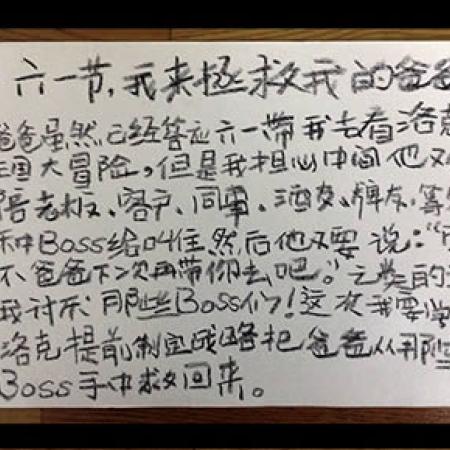 六一节,我来拯救我的爸爸
爸爸虽然已经答应六一带我去看洛克
王国大冒险,但是我担心中间他又
陪老板、客户、同事、酒友、牌友、等
种Boss给叫住然后他又要说:“
不爸爸下次再带你去吧。”之类的
我讨厌那些Boss们!这次我要学
洛克提前制定战略把爸爸从那些
Boss手中救回来。